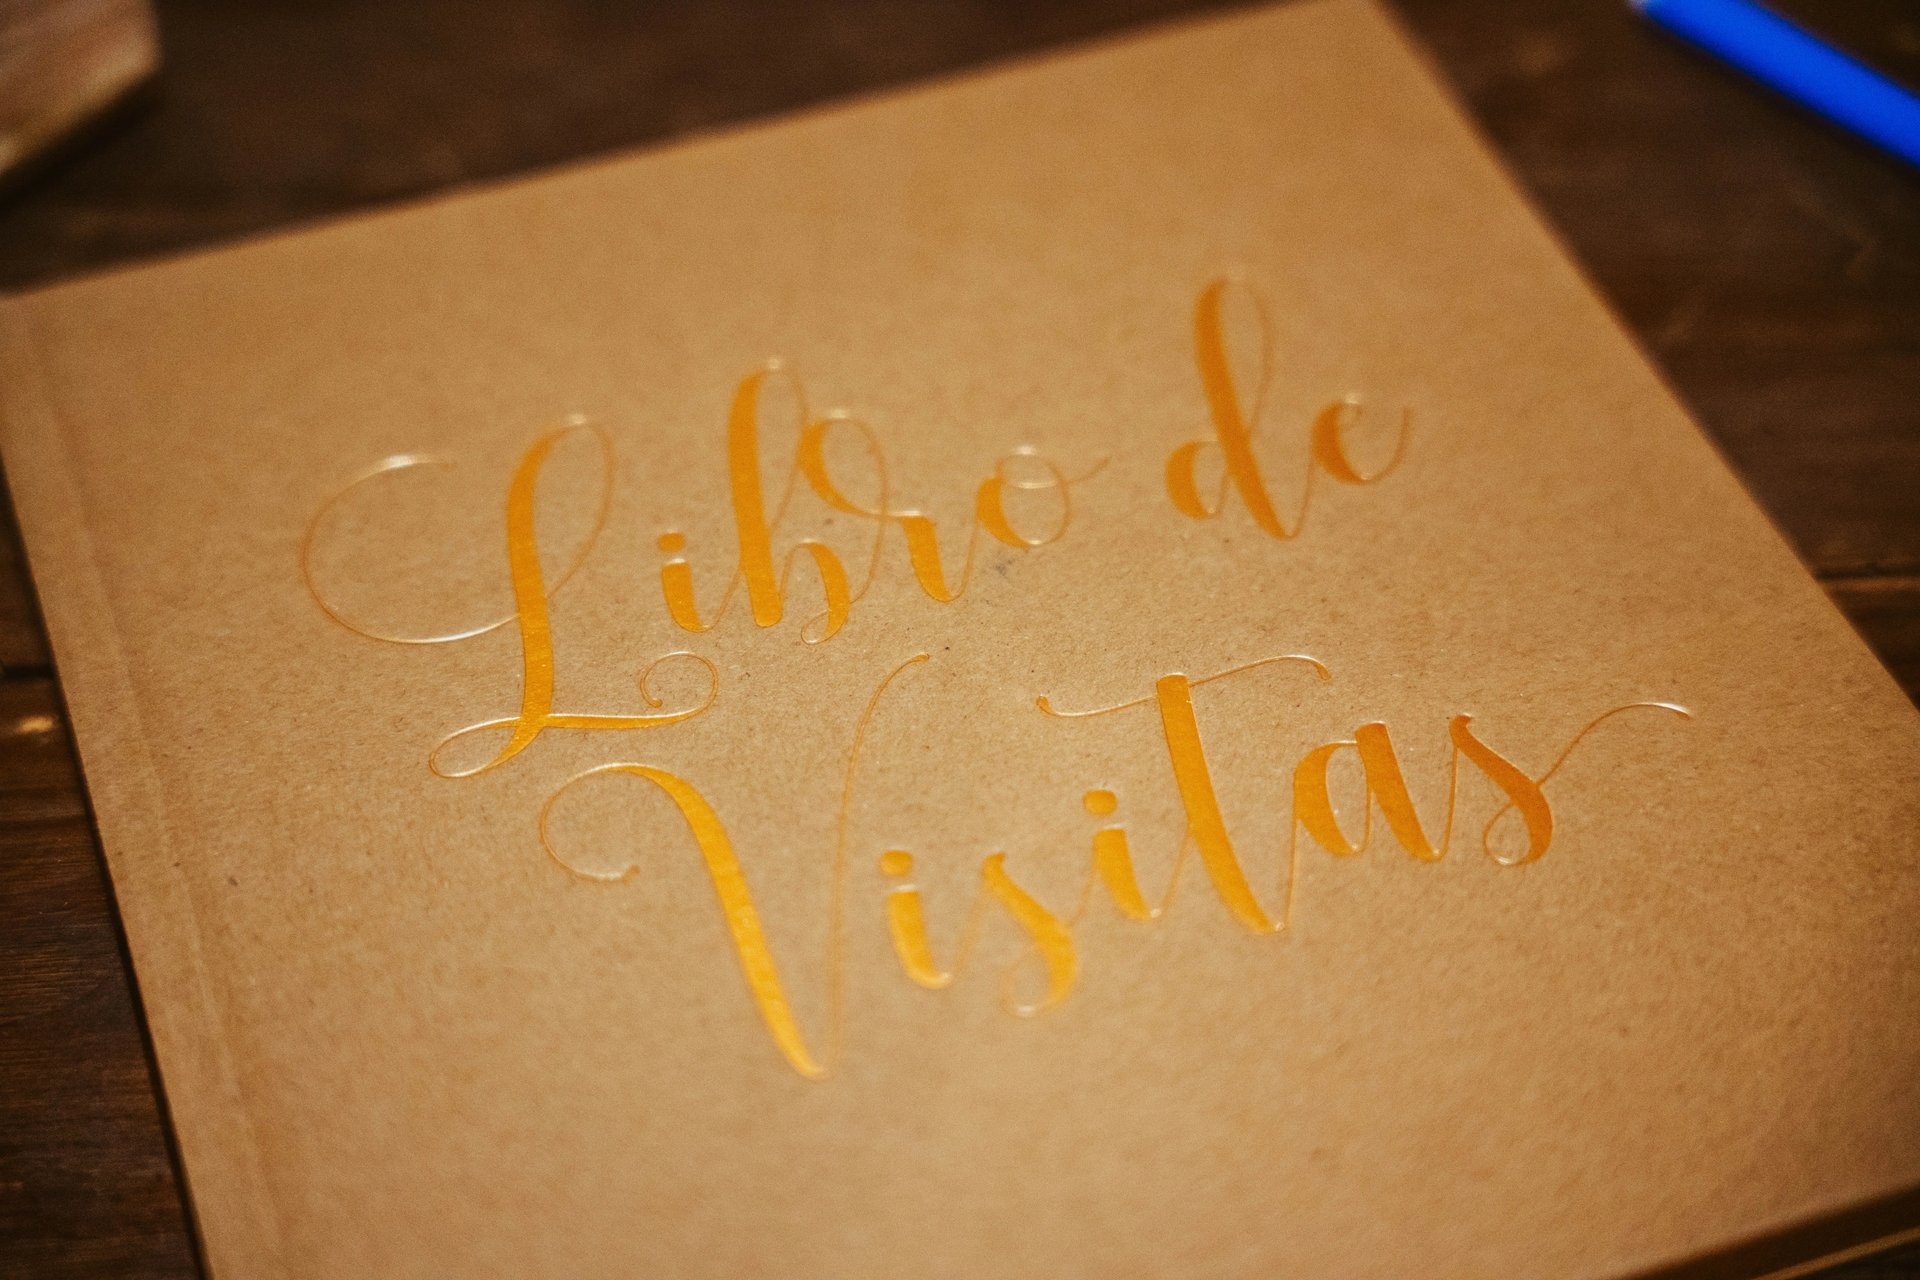 Libro de
Visitas